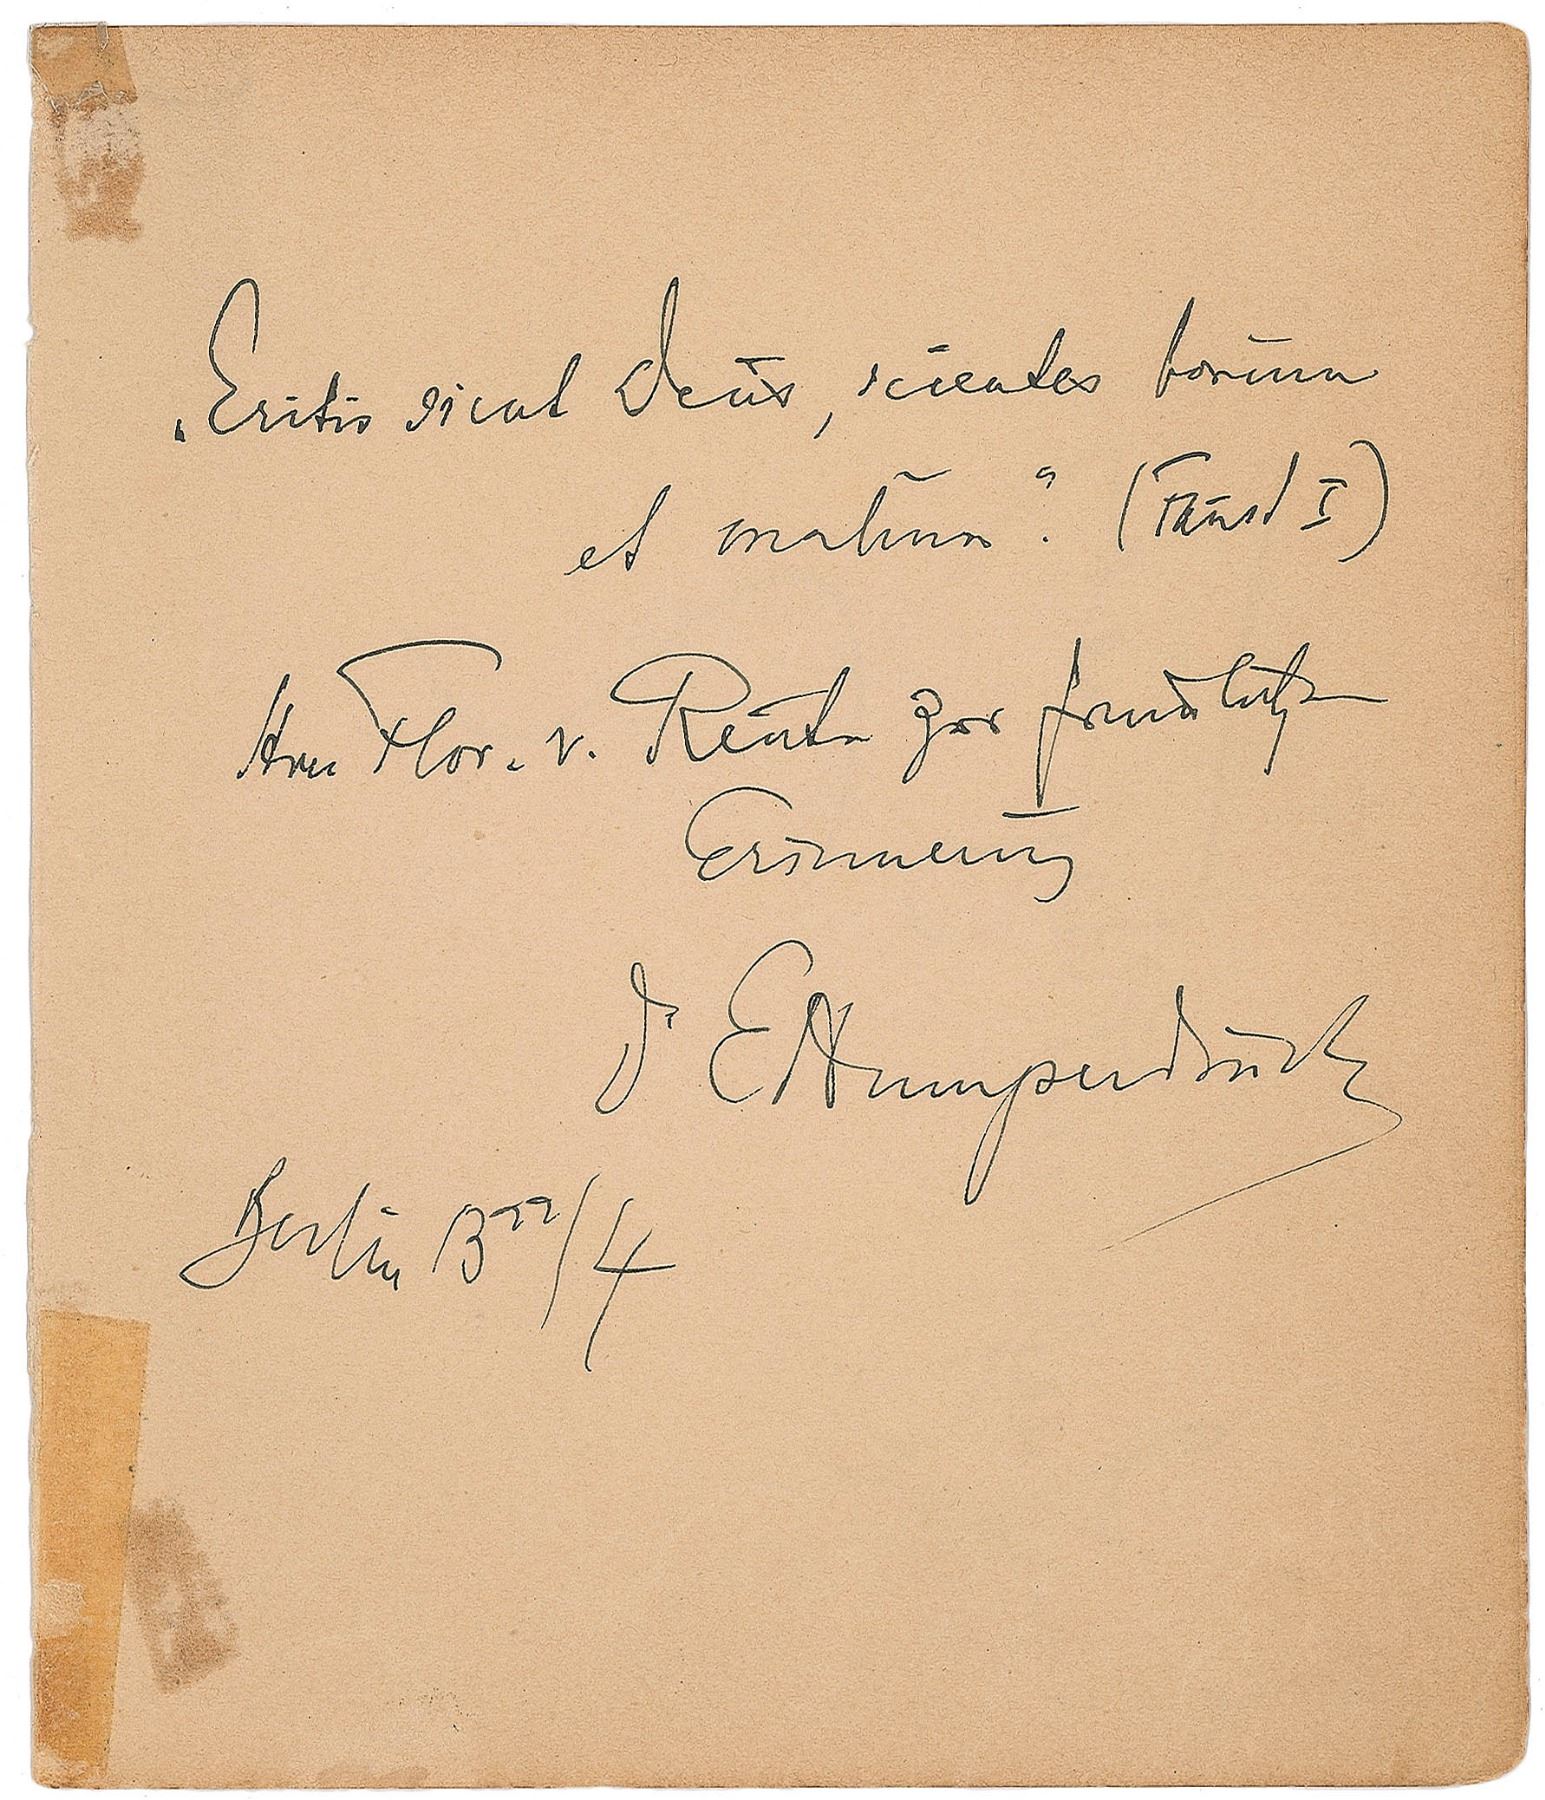 „Eritis sicut Deus, scientes bonum
et malum“. (Faust I)
Hrn Flor. v. Reuter zur freundlichen
Erinnerung
Dr EHumperdinck
Berlin 13 22/4